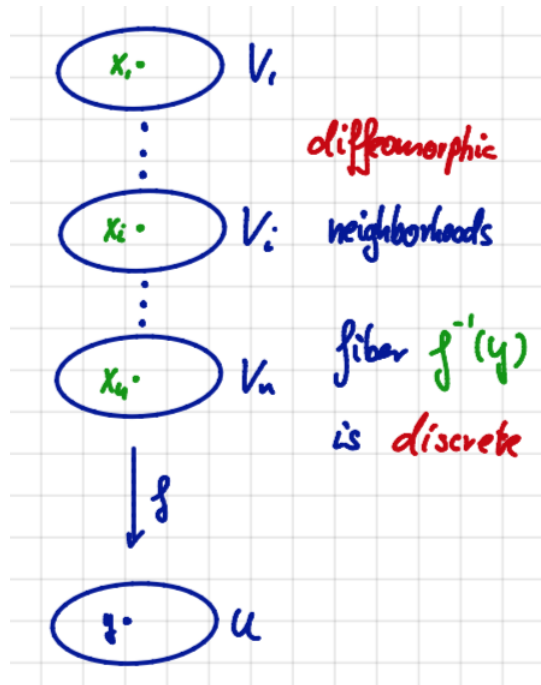 x₁ V₁
diffeomorphic
xᵢ Vᵢ neighborhoods
xₙ Vₙ fiber f⁻¹(y)
is discrete
f
y U